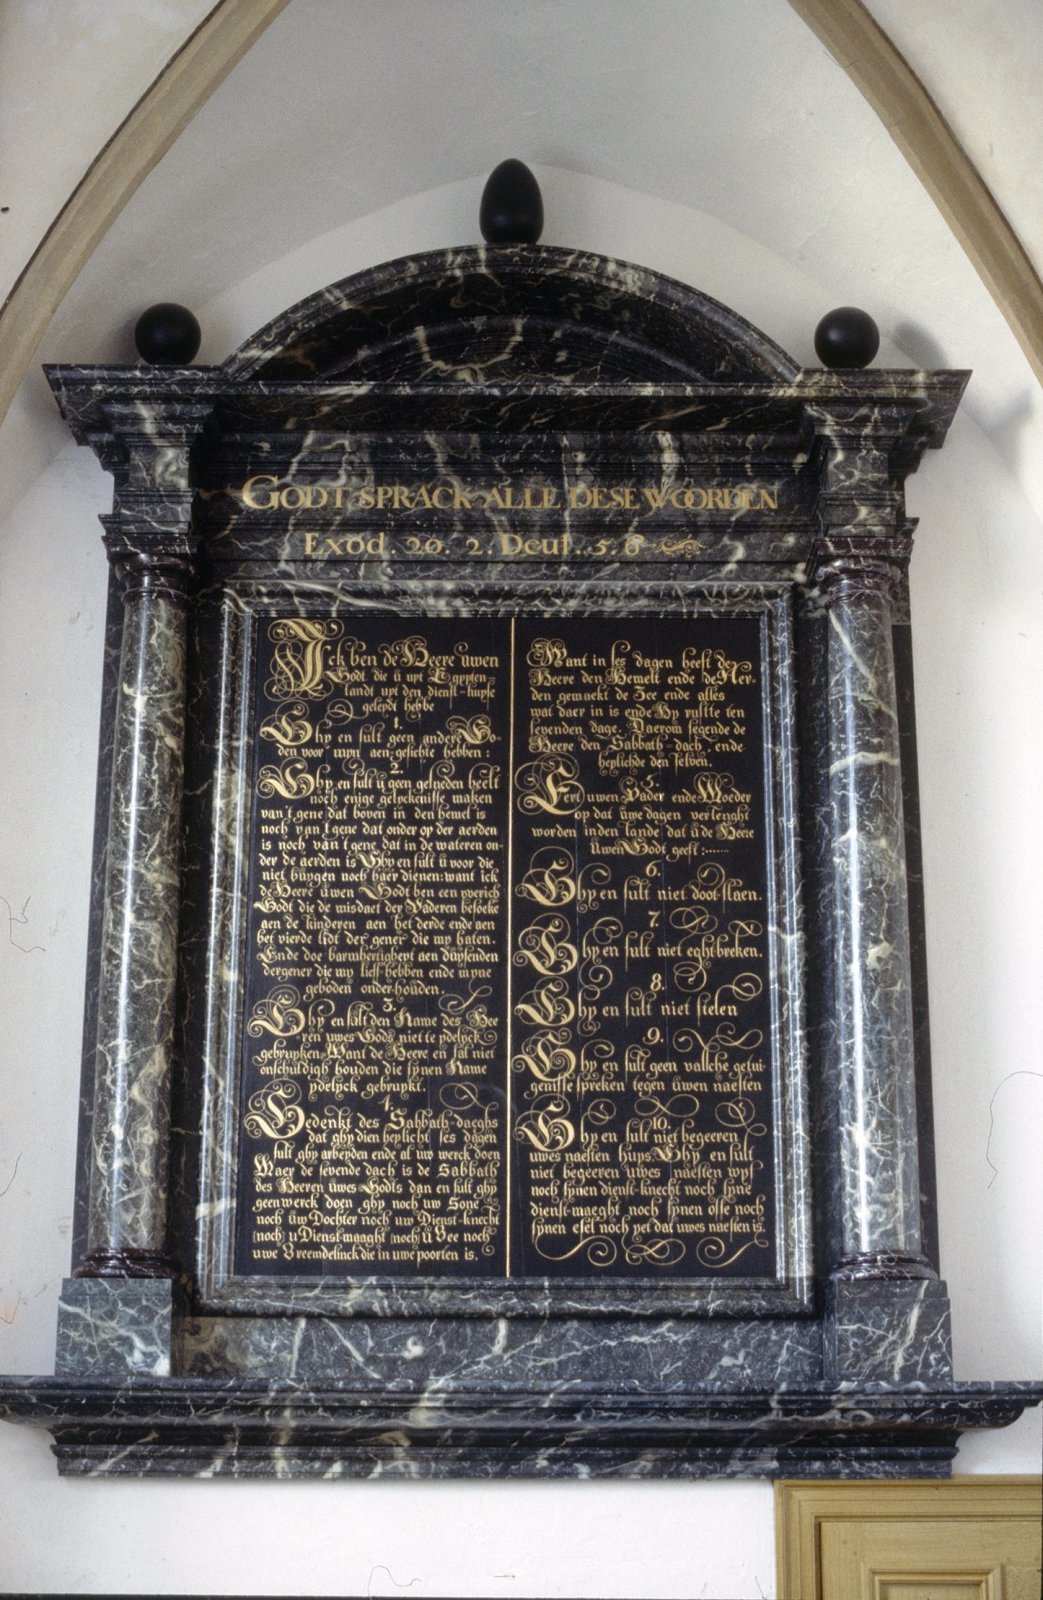 GODT SPRACK ALLE DESE WOORDEN
Exod. 20. 2. Deut. 5. 6
Ick ben de Heere uwen
Godt, die u uyt Egypten-
landt uyt den dienst-huyse
geleydt hebbe
1.
Ghy en sult geen andere Go-
den voor myn aen-gesichte hebben:
2.
Ghy en sult u geen gesneden beelt
noch enige gelyckenisse maken
van 't gene dat boven in den hemel is
noch van 't gene dat onder op der aerden
is noch van 't gene dat in de wateren on-
der de aerden is Ghy en sult u voor die
niet buygen noch haer dienen: want ick
de Heere uwen Godt ben een yverich
Godt die de misdaet der Vaderen besoeke
aen de kinderen aen het derde ende aen
het vierde lidt der gener die my haten.
Ende doe barmhertigheyt aen duysenden
dergener die my lieff hebben ende myne
geboden onder-houden.
3.
Ghy en sult den Name des Hee
ren uwes Gods niet te ydelyck
gebruyken Want de Heere en sal niet
onschuldigh houden die synen Name
ydelyck gebruykt.
4.
Gedenkt des Sabbath-daeghs
dat ghy dien heylicht ses dagen
sult ghy arbeyden ende al uw werck doen
Maer de sevende dach is de Sabbath
des Heeren uwes Godts dan en sult ghy
geen werck doen ghy noch uw Sone
noch uw Dochter noch uw Dienst-knecht
noch u Dienst-maaght noch u Vee noch
uwe Vreemdelinck die in uwe poorten is.
Want in ses dagen heeft de
Heere den Hemelt ende de Aer-
den gemaekt de Zee ende alles
wat daer in is ende Hy rustte ten
sevenden dage. Daerom segende de
Heere den Sabbath-dach, ende
heylichde den selven.
5.
Eert uwen Vader ende Moeder
op dat uwe dagen verlenght
worden inden lande dat u de Heere
uwen Godt geeft:......
6.
Ghy en sult niet doot-slaen.
7.
Ghy en sult niet eghtbreken.
8.
Ghy en sult niet stelen
9.
Ghy en sult geen valsche getui-
genisse spreken tegen uwen naesten
10.
Ghy en sult niet begeeren
uwes naesten huys Ghy en sult
niet begeeren uwes naesten wyf
noch synen dienst-knecht noch syne
dienst-maeght noch synen osse noch
synen esel noch yet dat uwes naesten is.